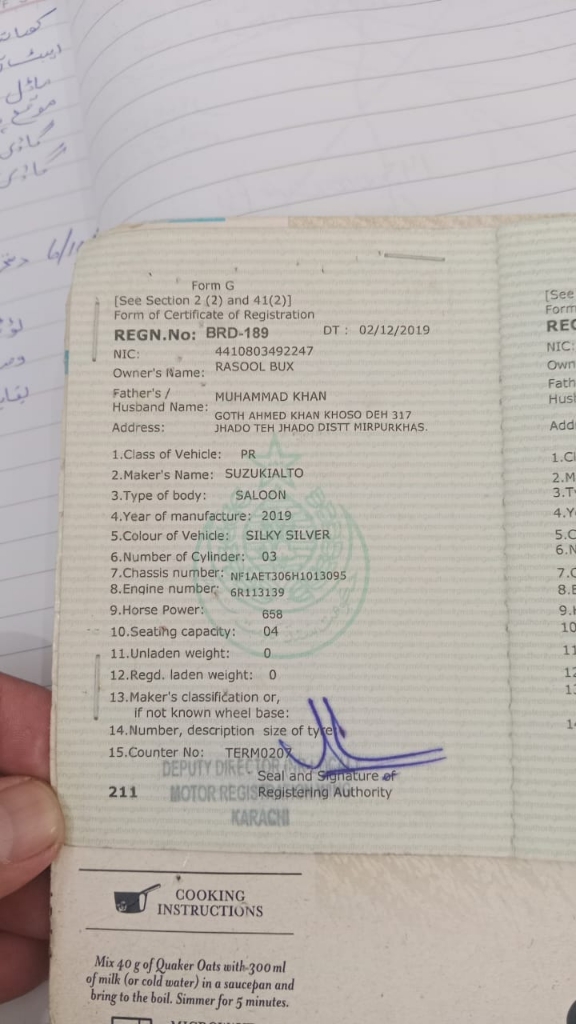 Form G
[See Section 2 (2) and 41(2)]
Form of Certificate of Registration
REGN.No: BRD-189 DT : 02/12/2019
NIC: 4410803492247
Owner's Name: RASOOL BUX
Father's /
Husband Name: MUHAMMAD KHAN
Address: GOTH AHMED KHAN KHOSO DEH 317
JHADO TEH JHADO DISTT MIRPURKHAS.
1.Class of Vehicle: PR
2.Maker's Name: SUZUKIALTO
3.Type of body: SALOON
4.Year of manufacture: 2019
5.Colour of Vehicle: SILKY SILVER
6.Number of Cylinder: 03
7.Chassis number: NF1AET306H1013095
8.Engine number: 6R113139
9.Horse Power: 658
10.Seating capacity: 04
11.Unladen weight: 0
12.Regd. laden weight: 0
13.Maker's classification or,
if not known wheel base:
14.Number, description size of tyre
15.Counter No: TERM0207
DEPUTY DIRECTOR
Seal and Signature of
211 MOTOR Registering Authority
KARACHI
COOKING
INSTRUCTIONS
Mix 40 g of Quaker Oats with 300 ml
of milk (or cold water) in a saucepan and
bring to the boil. Simmer for 5 minutes.
[See
Form
REG
NIC:
Own
Fath
Hus
Add
1.Cl
2.M
3.T
4.Y
5.C
6.N
7.C
8.E
9.H
10
11
12
13
14
ماڈل
گاڑی